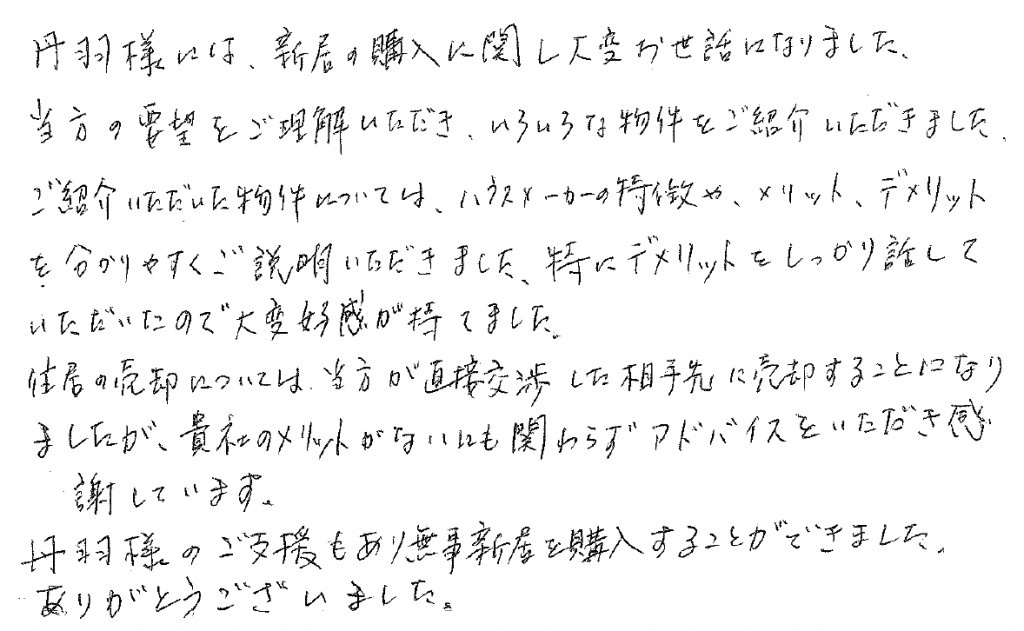 丹羽様には、新居の購入に関し大変お世話になりました、
当方の要望をご理解いただき、いろいろな物件をご紹介いただきました、
ご紹介いただいた物件については、ハウスメーカーの特徴や、メリット、デメリット
を分かりやすくご説明いただきました、特にデメリットをしっかり話して
いただいたので大変好感が持てました。
住居の売却については、当方が直接交渉した相手先に売却することになり
ましたが、貴社のメリットがないにも関わらずアドバイスをいただき感
謝しています。
丹羽様のご支援もあり無事新居を購入することができました、
ありがとうございました。